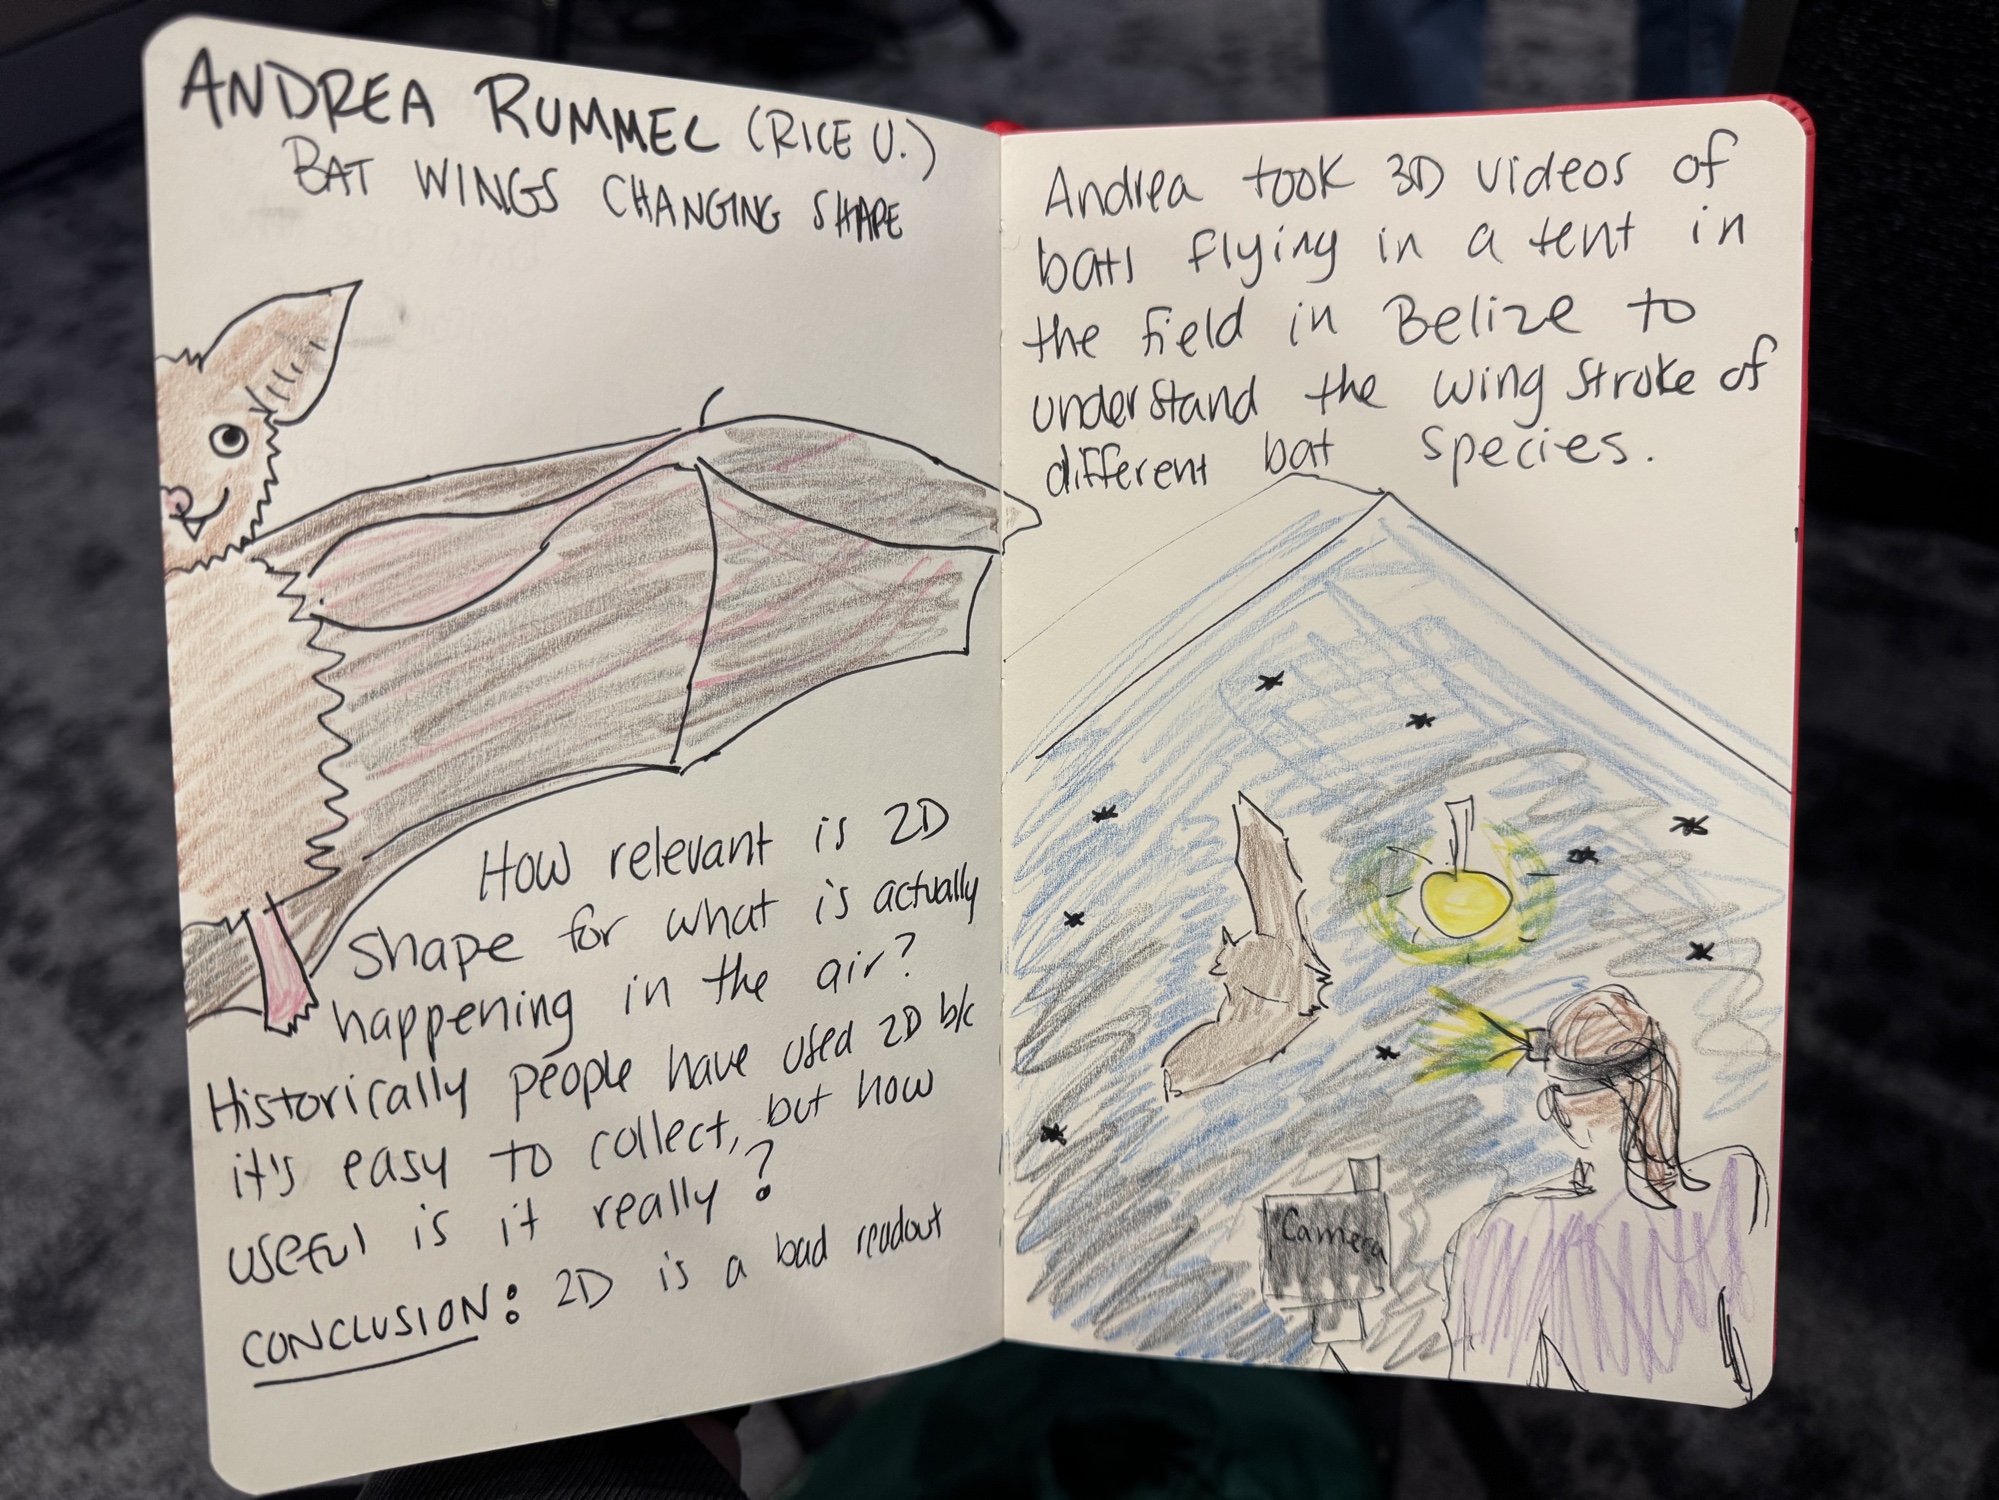 ANDREA RUMMEL (RICE U.)
BAT WINGS CHANGING SHAPE
How relevant is 2D
shape for what is actually
happening in the air?
Historically people have used 2D b/c
it's easy to collect, but how
useful is it really?
CONCLUSION: 2D is a bad readout
Andrea took 3D videos of
bats flying in a tent in
the field in Belize to
understand the wing stroke of
different bat species.
Camera